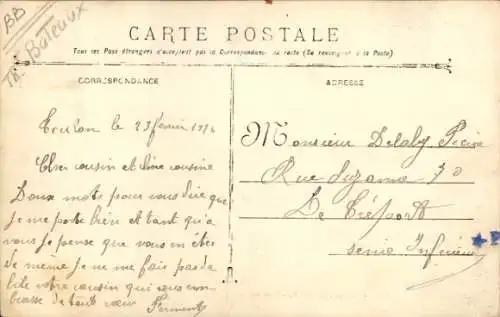 BB
Th Bateaux
CARTE POSTALE
Tous les Pays étrangers n'acceptent pas la Correspondance au recto (Se renseigner à la Poste)
CORRESPONDANCE
ADRESSE
Toulon le 23 février
Cher cousin et chère cousine
Deux mots pour vous dire que
je me porte bien et tant qu'a
vous je pense que vous en êtes
de même je ne me fais pas de
bile votre cousin qui vous em-
brasse de tout cœur
Monsieur Delaby
Rue Suzanne
Le Tréport
Seine Inférieure